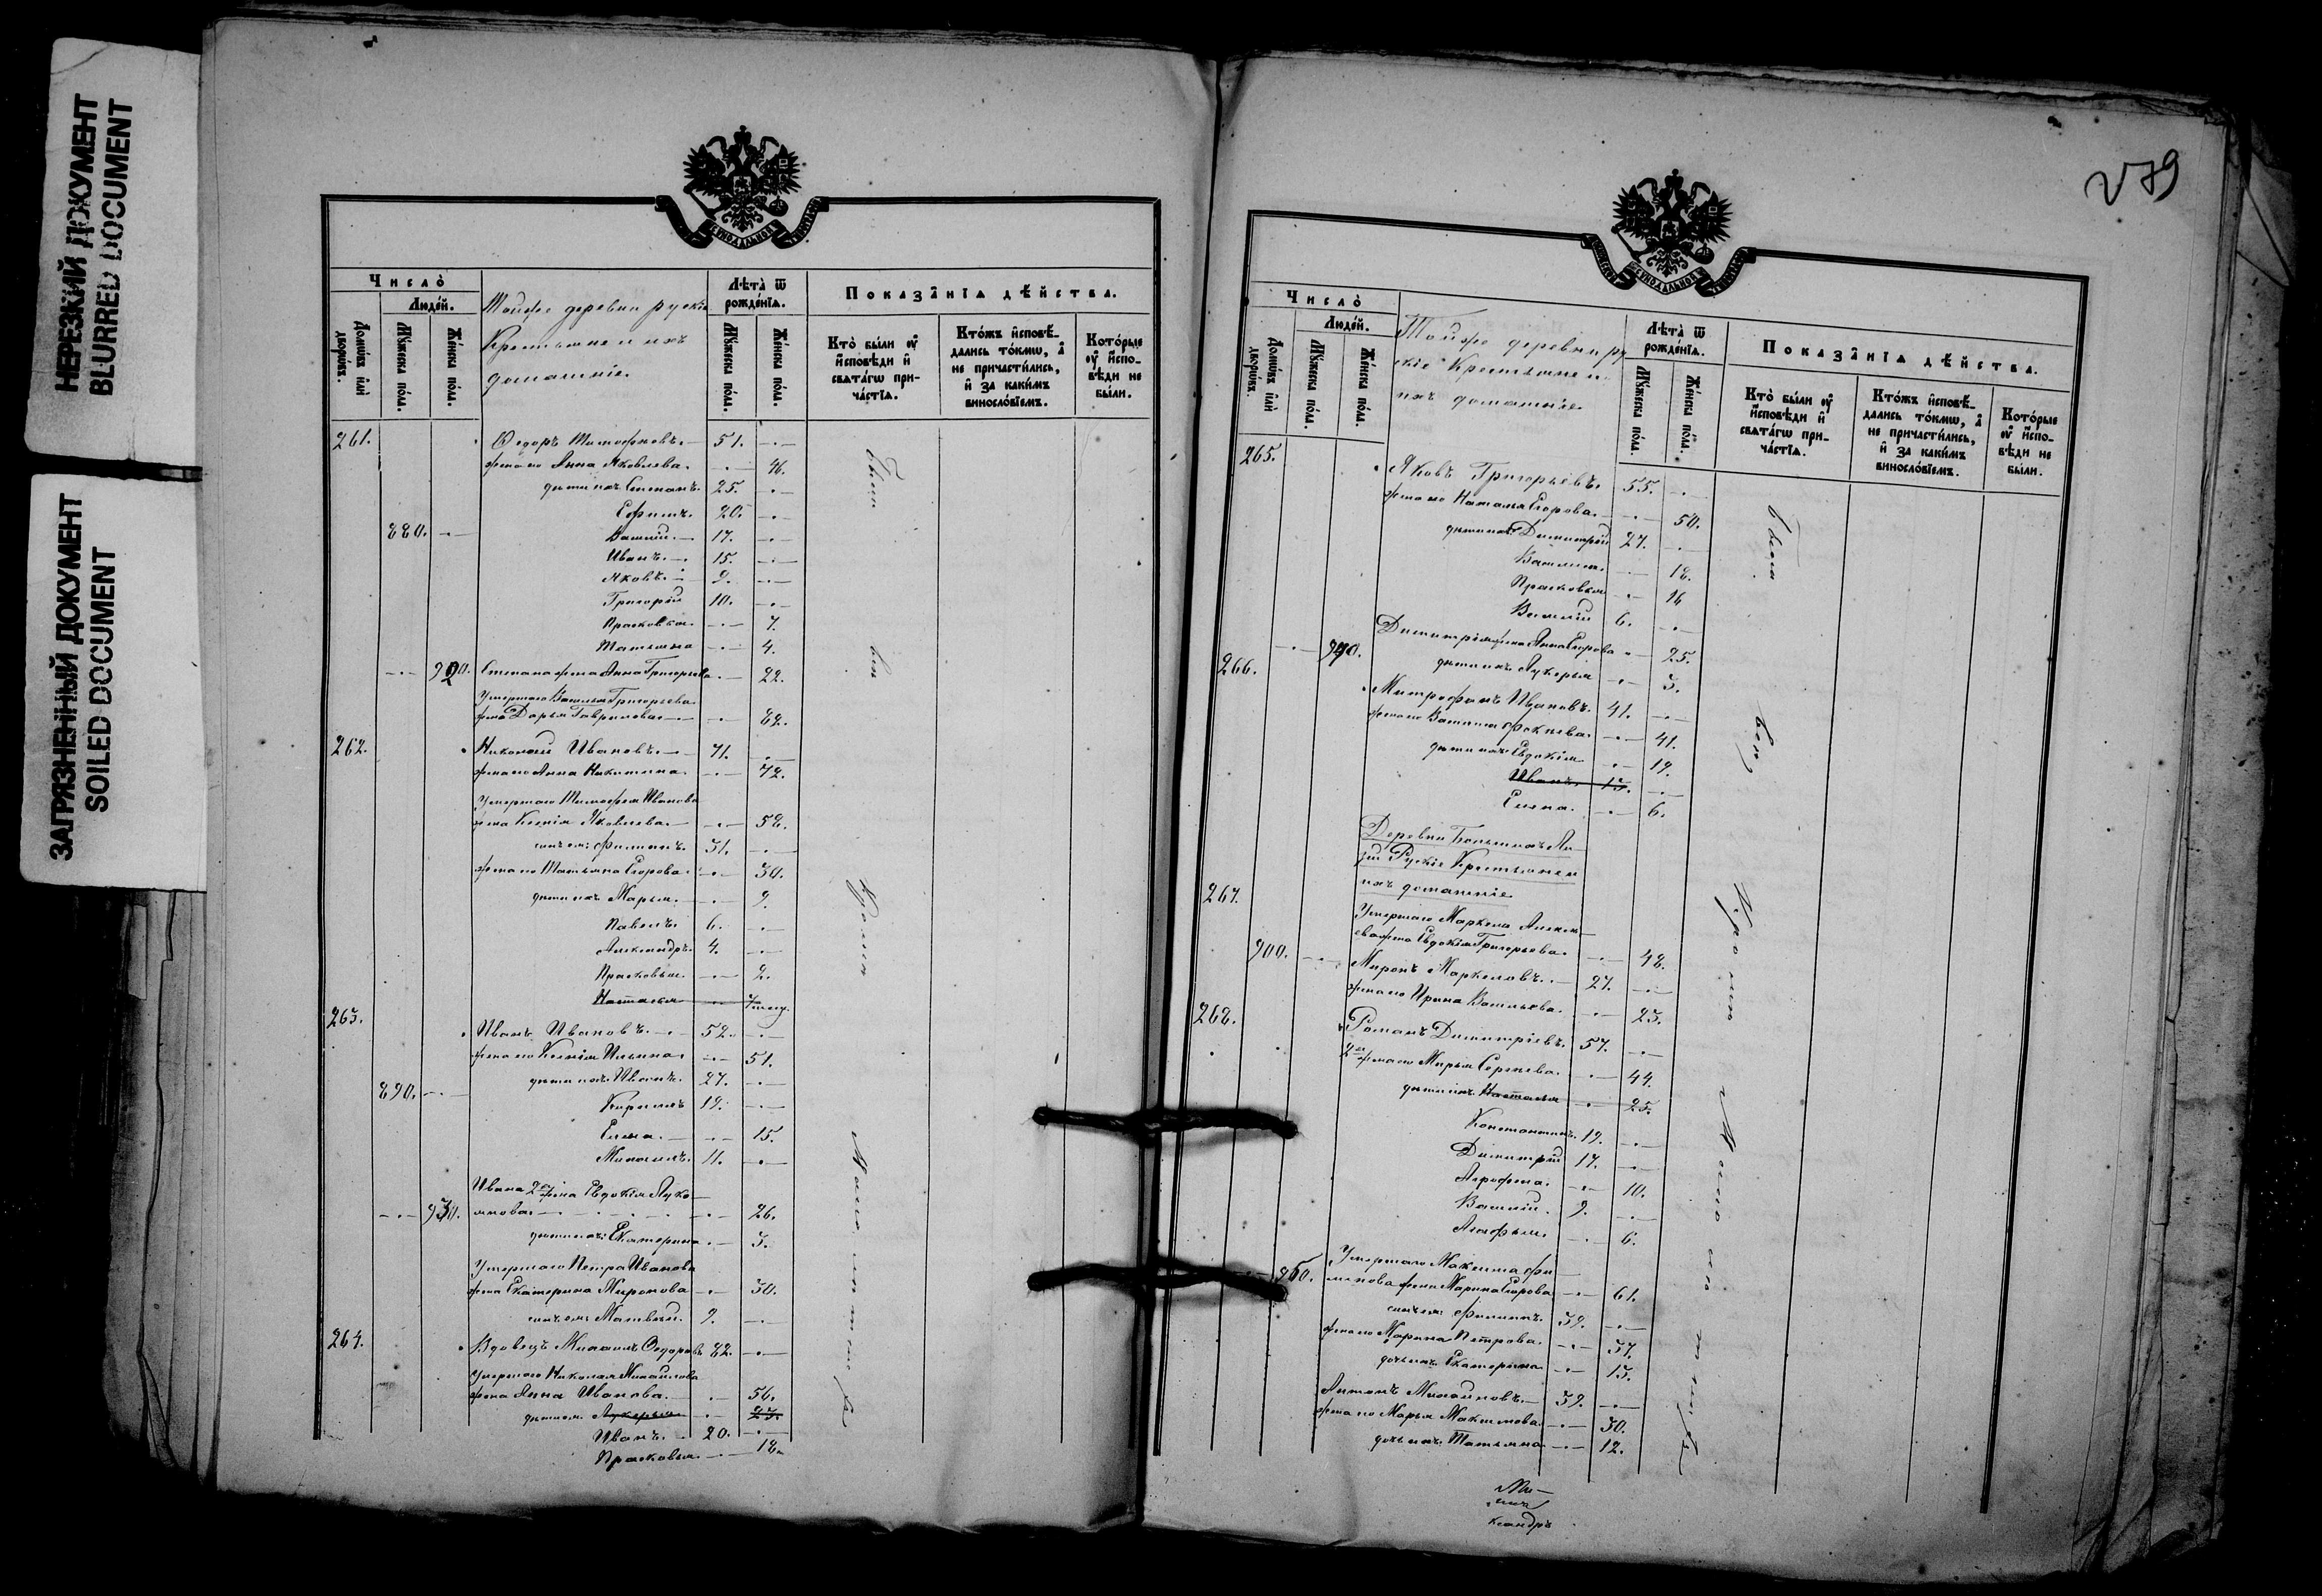 НЕРЕЗКИЙ ДОКУМЕНТ
BLURRED DOCUMENT
ЗАГРЯЗНЕННЫЙ ДОКУМЕНТ
SOILED DOCUMENT
Число̀
Людéй.
Домѡвъ и҆лѝ дворѡвъ.
Мꙋ́жеска по́ла.
Же́нска по́ла.
Тойже деревни рускіе
Крестьяне и ихъ
домашніе.
Лѣта̀ ѿ рождéнїѧ.
Мꙋ́жеска по́ла.
Же́нска по́ла.
Показа̑нїѧ дѣ́йства.
Кто̀ бы́ли ᲂу҆ и҆сповѣди и҆ свѧта́гѡ при-ча́стїѧ.
Кто́жъ и҆сповѣ́-дались то́кмѡ, а҆ не причасти́лись, и҆ за каки́мъ винослóвїемъ.
Кото́рые ᲂу҆ и҆спо-вѣди не бы́ли.
261. Ѳедоръ Тимофѣевъ. 51.
жена его Анна Яковлева. 46.
дѣти ихъ Степанъ. 25.
Ефимъ. 20.
880. Василій. 17.
Иванъ. 15.
Яковъ. 9.
Григорій 10.
Прасковья. 7.
Татьяна 4.
920. Степана жена Анна Григорьева 22.
Умершаго Василья Григорьева
жена Дарья Гаврилова 82.
262. Николай Ивановъ. 71.
жена его Анна Никитина. 72.
Умершаго Тимофея Иванова
жена Ксенія Яковлева. 58.
сынъ ея Филипъ. 31.
жена его Татьяна Егорова. 30.
дѣти ихъ Марья. 9.
Павелъ. 6.
Александръ. 4.
Прасковья. 2.
Наталья
263. Иванъ Ивановъ. 52.
жена его Ксенія Ильина. 51.
дѣти ихъ Иванъ. 27.
890. Кирилъ 19.
Елена. 15.
Михаилъ. 11.
Ивана 2ая жена Евдокія Луко-
930. янова. 26.
дѣти ихъ Екатерина 3.
Умершаго Петра Иванова
жена Екатерина Миронова 30.
сынъ ея Матвей. 9.
264. Вдовецъ Михаилъ Ѳедоровъ 82.
Умершаго Николая Михайлова
жена Анна Иванова. 56.
дѣти ея Лукерья 23.
Иванъ. 20.
Прасковья. 18.
были
вси
279
Число̀
Людéй.
Домѡвъ и҆лѝ дворѡвъ.
Мꙋ́жеска по́ла.
Же́нска по́ла.
Тойже деревни ру
скіе Крестьяне и
ихъ домашніе
Лѣта̀ ѿ рождéнїѧ.
Мꙋ́жеска по́ла.
Же́нска по́ла.
Показа̑нїѧ дѣ́йства.
Кто̀ бы́ли ᲂу҆ и҆сповѣди и҆ свѧта́гѡ при-ча́стїѧ.
Кто́жъ и҆сповѣ́-дались то́кмѡ, а҆ не причасти́лись, и҆ за каки́мъ винослóвїемъ.
Кото́рые ᲂу҆ и҆спо-вѣди не бы́ли.
265. Яковъ Григорьевъ. 55.
жена его Наталья Егорова. 50.
дѣти ихъ Димитрій 27.
Василиса. 18.
Прасковья 16
Василій 6.
940. Димитрія жена Анна Егорова 25.
дѣти ихъ Лукерья 3.
266. Митрофанъ Ивановъ. 41.
41.
дѣти ихъ Евдокія 19.
Иванъ. 15.
Елена. 6.
Деревни Большихъ
Рускіе Крестьяне и
ихъ домашніе
267. Умершаго Маркела Алексѣ-
ева жена Евдокія Григорьева. 48.
900. Миронъ Маркеловъ. 27.
жена его Ирина Васильева. 23.
268. Романъ Димитріевъ. 57.
2ая жена его Марья Сергеева. 44.
дѣти ихъ Наталья 25.
Константинъ. 19.
Димитрій 17.
Агрофена. 10.
Василій. 9.
Агафья. 6.
Умершаго Максима Фи
950. липова жена Марина Егорова 61.
сынъ ея Филипъ. 39.
жена его Марина Петрова. 37.
дочь ихъ Екатерина 15.
Антонъ Михайловъ. 39.
жена его Марья Максимова 30.
дочь ихъ Татьяна 12.
были
вси